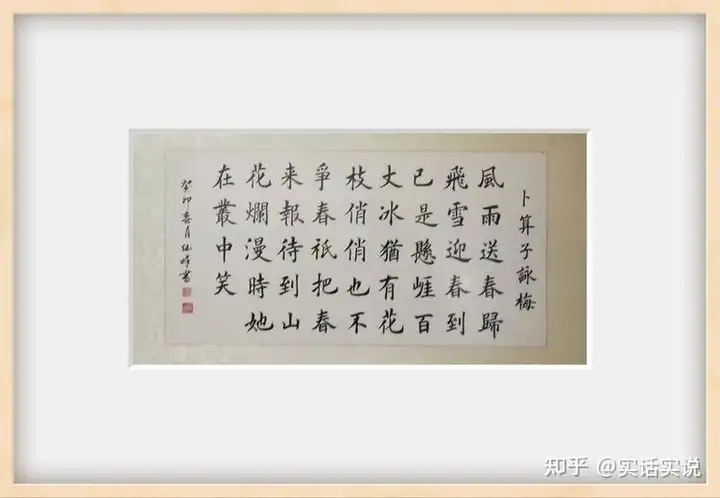 卜算子詠梅
風雨送春歸
飛雪迎春到
已是懸崕百
丈冰猶有花
枝俏俏也不
爭春祇把春
来報待到山
花爛漫時她
在叢中笑
癸卯春月
書
知乎 @实话实说